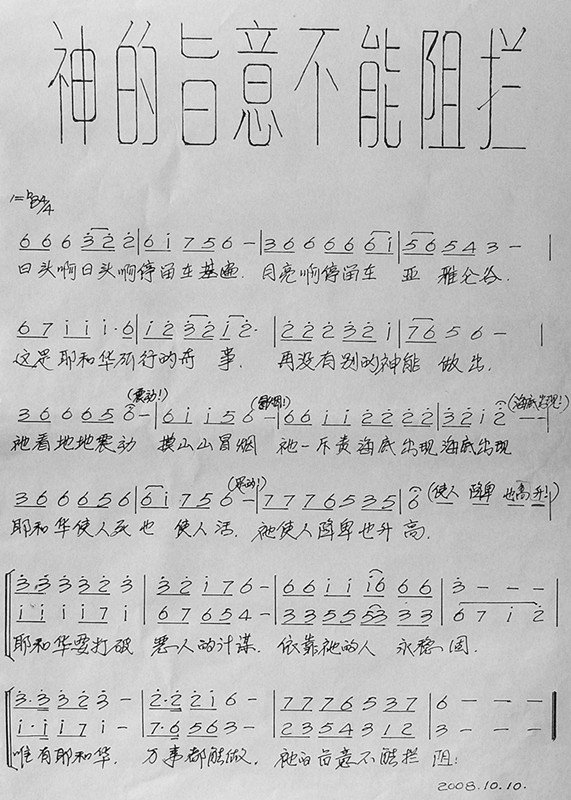 神的旨意不能阻拦
1=♭B 4/4
6 6 6 3 2 2 | 6 i 7 5 6 - | 3 6 6 6 6 6 i | 5 6 5 4 3 - |
日头啊日头啊停留在基遍. 月亮啊停留在 亚 雅仑谷.
6 7 i i i · 6 | i 2 3 2 i 2 · | 2 2 2 3 2 i | 7 6 5 6 - |
这是耶和华所行的奇 事. 再没有别的神能 做 出.
(震动!) (冒烟!) (海底出现!)
3 6 6 6 6 5 6 - | 6 i i 5 6 - | 6 6 i i 2 2 2 2 2 | 3 2 i 2 - - |
祂看地地震动 摸山山冒烟 祂一斥责海底出现海底出现
(使人 降卑 也高升!)
3 6 6 6 5 6 | 6 i 7 5 6 - | 7 7 7 7 6 5 3 5 | 6 - - - |
耶和华使人死也 使人活. 祂使人降卑也升高.
3 · 3 3 3 3 2 3 | 3 2 i 7 6 - | 6 6 i i i 6 6 6 | 3 - - - |
i i i i 7 i | 6 7 6 5 4 - | 3 3 5 5 5 3 3 3 | 6 7 i 2 |
耶和华要打破 恶人的计谋. 依靠祂的人 永稳固.
3 · 3 3 2 3 - | 2 · 2 2 i 6 - | 7 7 7 6 5 3 7 | 6 - - - |
i · i i 7 i - | 7 · 6 5 6 3 - | 2 3 5 4 3 1 2 | 3 - - - |
唯有耶和华. 万事都能做. 祂的旨意不能拦 阻.
2008.10.10.